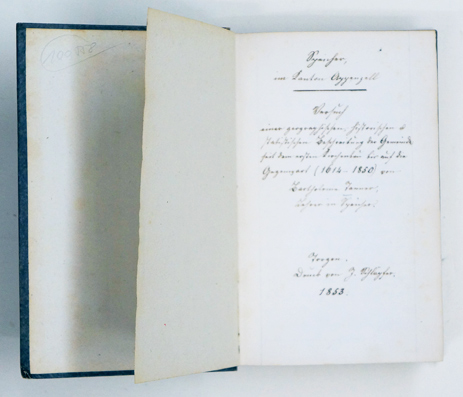 100 
Speicher,
im Kanton Appenzell
Versuch
einer geographischen, historischen &
statistischen Beschreibung der Gemeinde
seit dem ersten Kirchenbau bis auf die
Gegenwart (1614 - 1850) von
Bartholome Tanner,
Lehrer in Speicher.
Trogen.
Druck von J. Schläpfer.
1853.